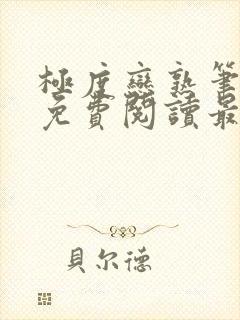 極度戀熟筆
免費閱讀最
貝尔德